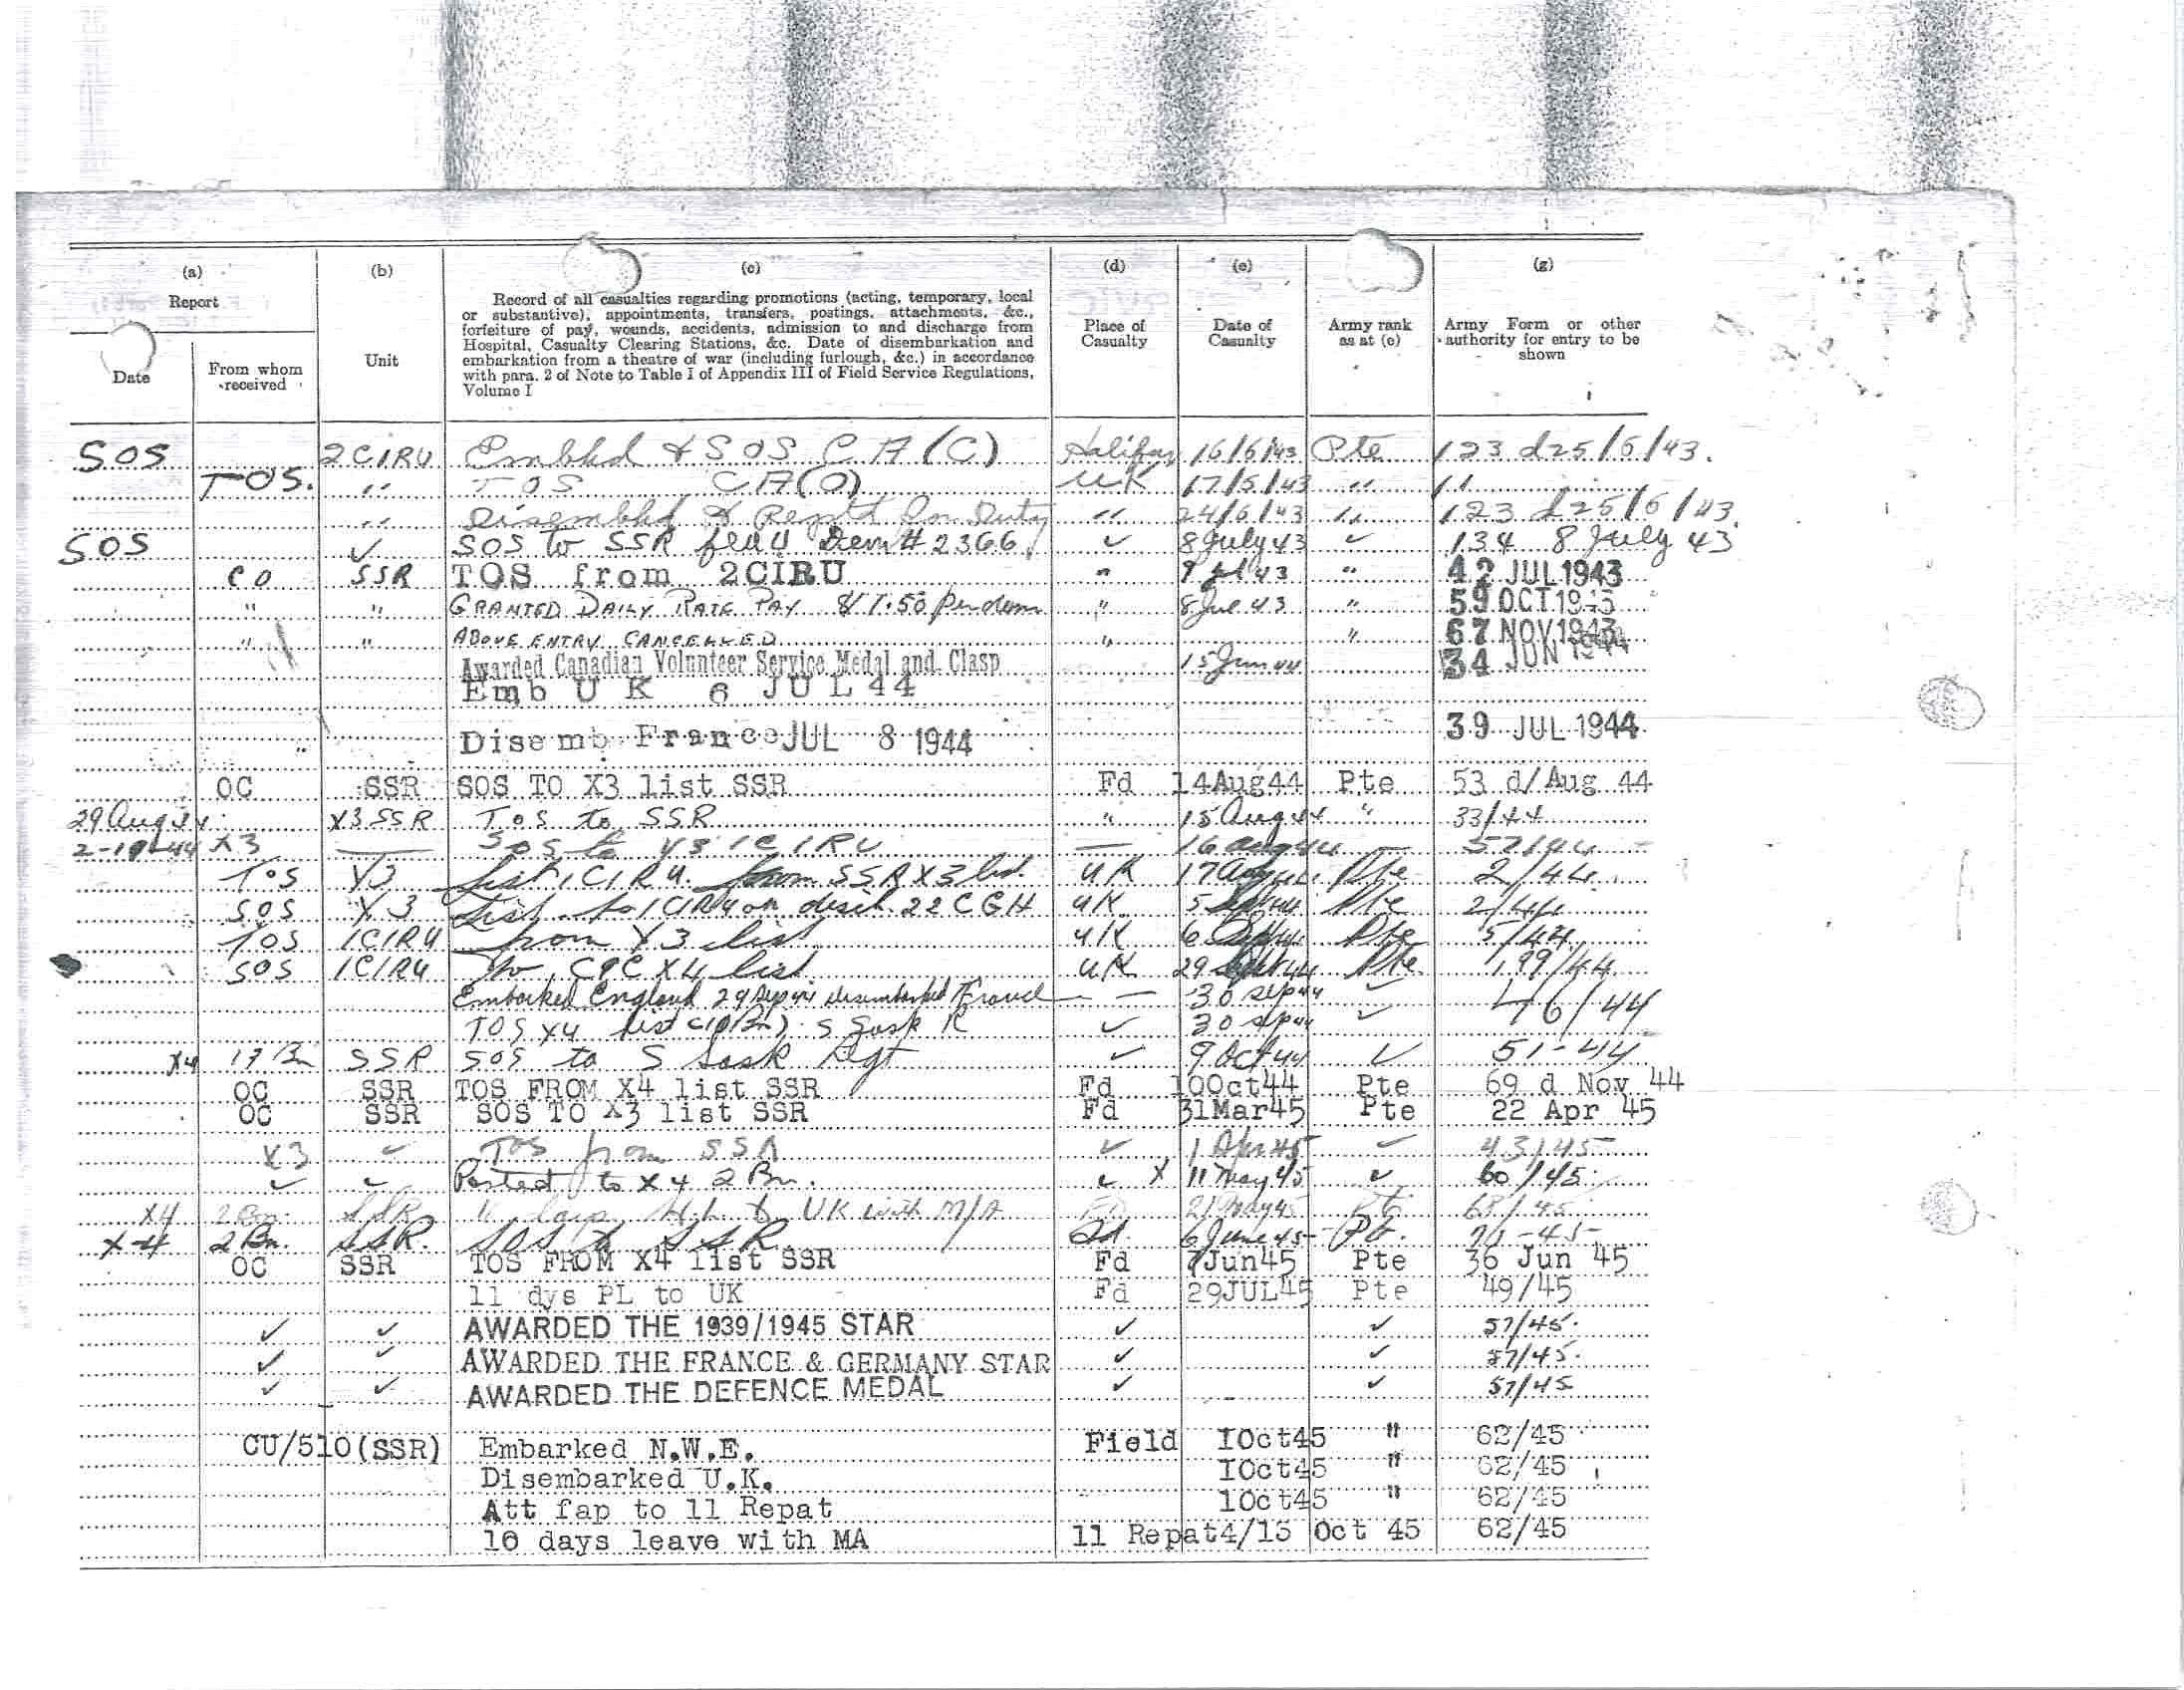 (a) (b) (c) (d) (e) (g)
Report
Date
From whom received
Unit
Record of all casualties regarding promotions (acting, temporary, local
or substantive), appointments, transfers, postings, attachments, &c.,
forfeiture of pay, wounds, accidents, admission to and discharge from
Hospital, Casualty Clearing Stations, &c. Date of disembarkation and
embarkation from a theatre of war (including furlough, &c.) in accordance
with para. 2 of Note to Table I of Appendix III of Field Service Regulations,
Volume I
Place of Casualty
Date of Casualty
Army rank as at (e)
Army Form or other authority for entry to be shown
SOS 2CIRU Embkd & SOS CA(C) Halifax 16/6/43 Pte 123 d25/6/43.
TOS. " TOS CA(O) UK 17/6/43 " "
" Disembkd & Reptd On Duty " 24/6/43 " 123 d25/6/43
SOS ✓ SOS to SSR 2366 ✓ 8 July 43 ✓ 134 8 July 43
CO SSR TOS from 2CIRU " 9 Jul 43 " 42 JUL 1943
" " GRANTED DAILY RATE PAY $1.50 per diem " 8 Jul 43 " 59 OCT 1943
" " ABOVE ENTRY CANCELLED " " 67 NOV 1943
Awarded Canadian Volunteer Service Medal and Clasp 15 Jun 44 34 JUN 1944
Emb U K 6 JUL 44
Disemb France JUL 8 1944 39 JUL 1944
OC SSR SOS TO X3 list SSR Fd 14Aug44 Pte 53 d/Aug 44
29 Aug 44 X3 SSR TOS to SSR " 15 Aug 44 " 33/44
X3 SOS to Y3 1CIRU 16 Aug 44 57/44
TOS Y3 list 1CIRU from SSR X3 list UK 17 Aug 44 Pte 2/44
SOS Y3 List to 1CIRU on disch 22 CGH UK 5 Sept 44 Pte 2/44
TOS 1CIRU from Y3 list UK 6 Sept 44 Pte 5/44
SOS 1CIRU to X4 list UK 29 Sept 44 Pte 199/44
Embarked England 29 Sep 44 disembarked France 30 Sep 44 ✓ 46/44
TOS X4 list S Sask R ✓ 30 Sep 44 ✓
X4 17 Bn SSR SOS to S Sask Rgt ✓ 9 Oct 44 ✓ 51-44
OC SSR TOS FROM X4 list SSR Fd 10Oct44 Pte 69 d Nov 44
OC SSR SOS TO X3 list SSR Fd 31Mar45 Pte 22 Apr 45
X3 ✓ TOS from SSR ✓ 1 Apr 45 ✓ 43/45
✓ ✓ Posted to X4 2 Bn. ✓ X 11 May 45 ✓ 60/45
X4 2 Bn SSR 11 days to UK with M/A 21 May 45 68/45
X4 2 Bn. SSR. SOS to SSR Fd. 6 June 45 Pte.
OC SSR TOS FROM X4 list SSR Fd 7Jun45 Pte 36 Jun 45
11 dys PL to UK Fd 29JUL45 Pte 49/45
✓ ✓ AWARDED THE 1939/1945 STAR ✓ ✓ 57/45.
✓ ✓ AWARDED THE FRANCE & GERMANY STAR ✓ ✓ 57/45.
✓ ✓ AWARDED THE DEFENCE MEDAL ✓ ✓ 57/45
CU/510(SSR) Embarked N.W.E. Field 1Oct45 " 62/45
Disembarked U.K. 1Oct45 " 62/45
Att fap to 11 Repat 1Oct45 " 62/45
10 days leave with MA 11 Repat 4/13 Oct 45 62/45